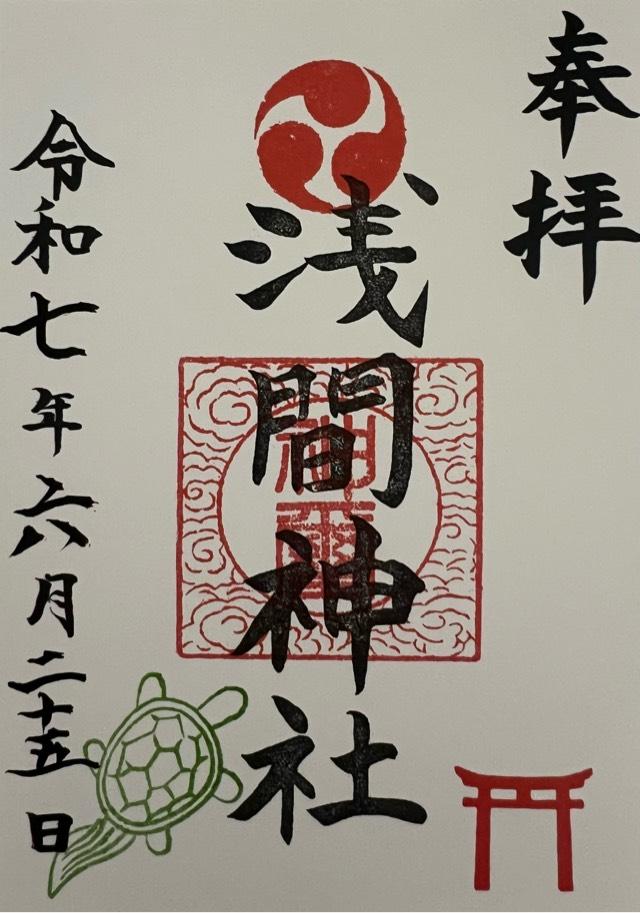 奉拝
浅間神社
神璽
令和七年六月二十五日